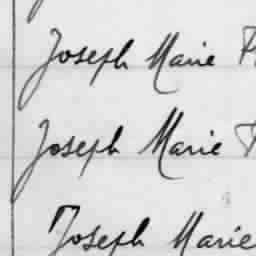 Joseph Marie
Joseph Marie
Joseph Marie